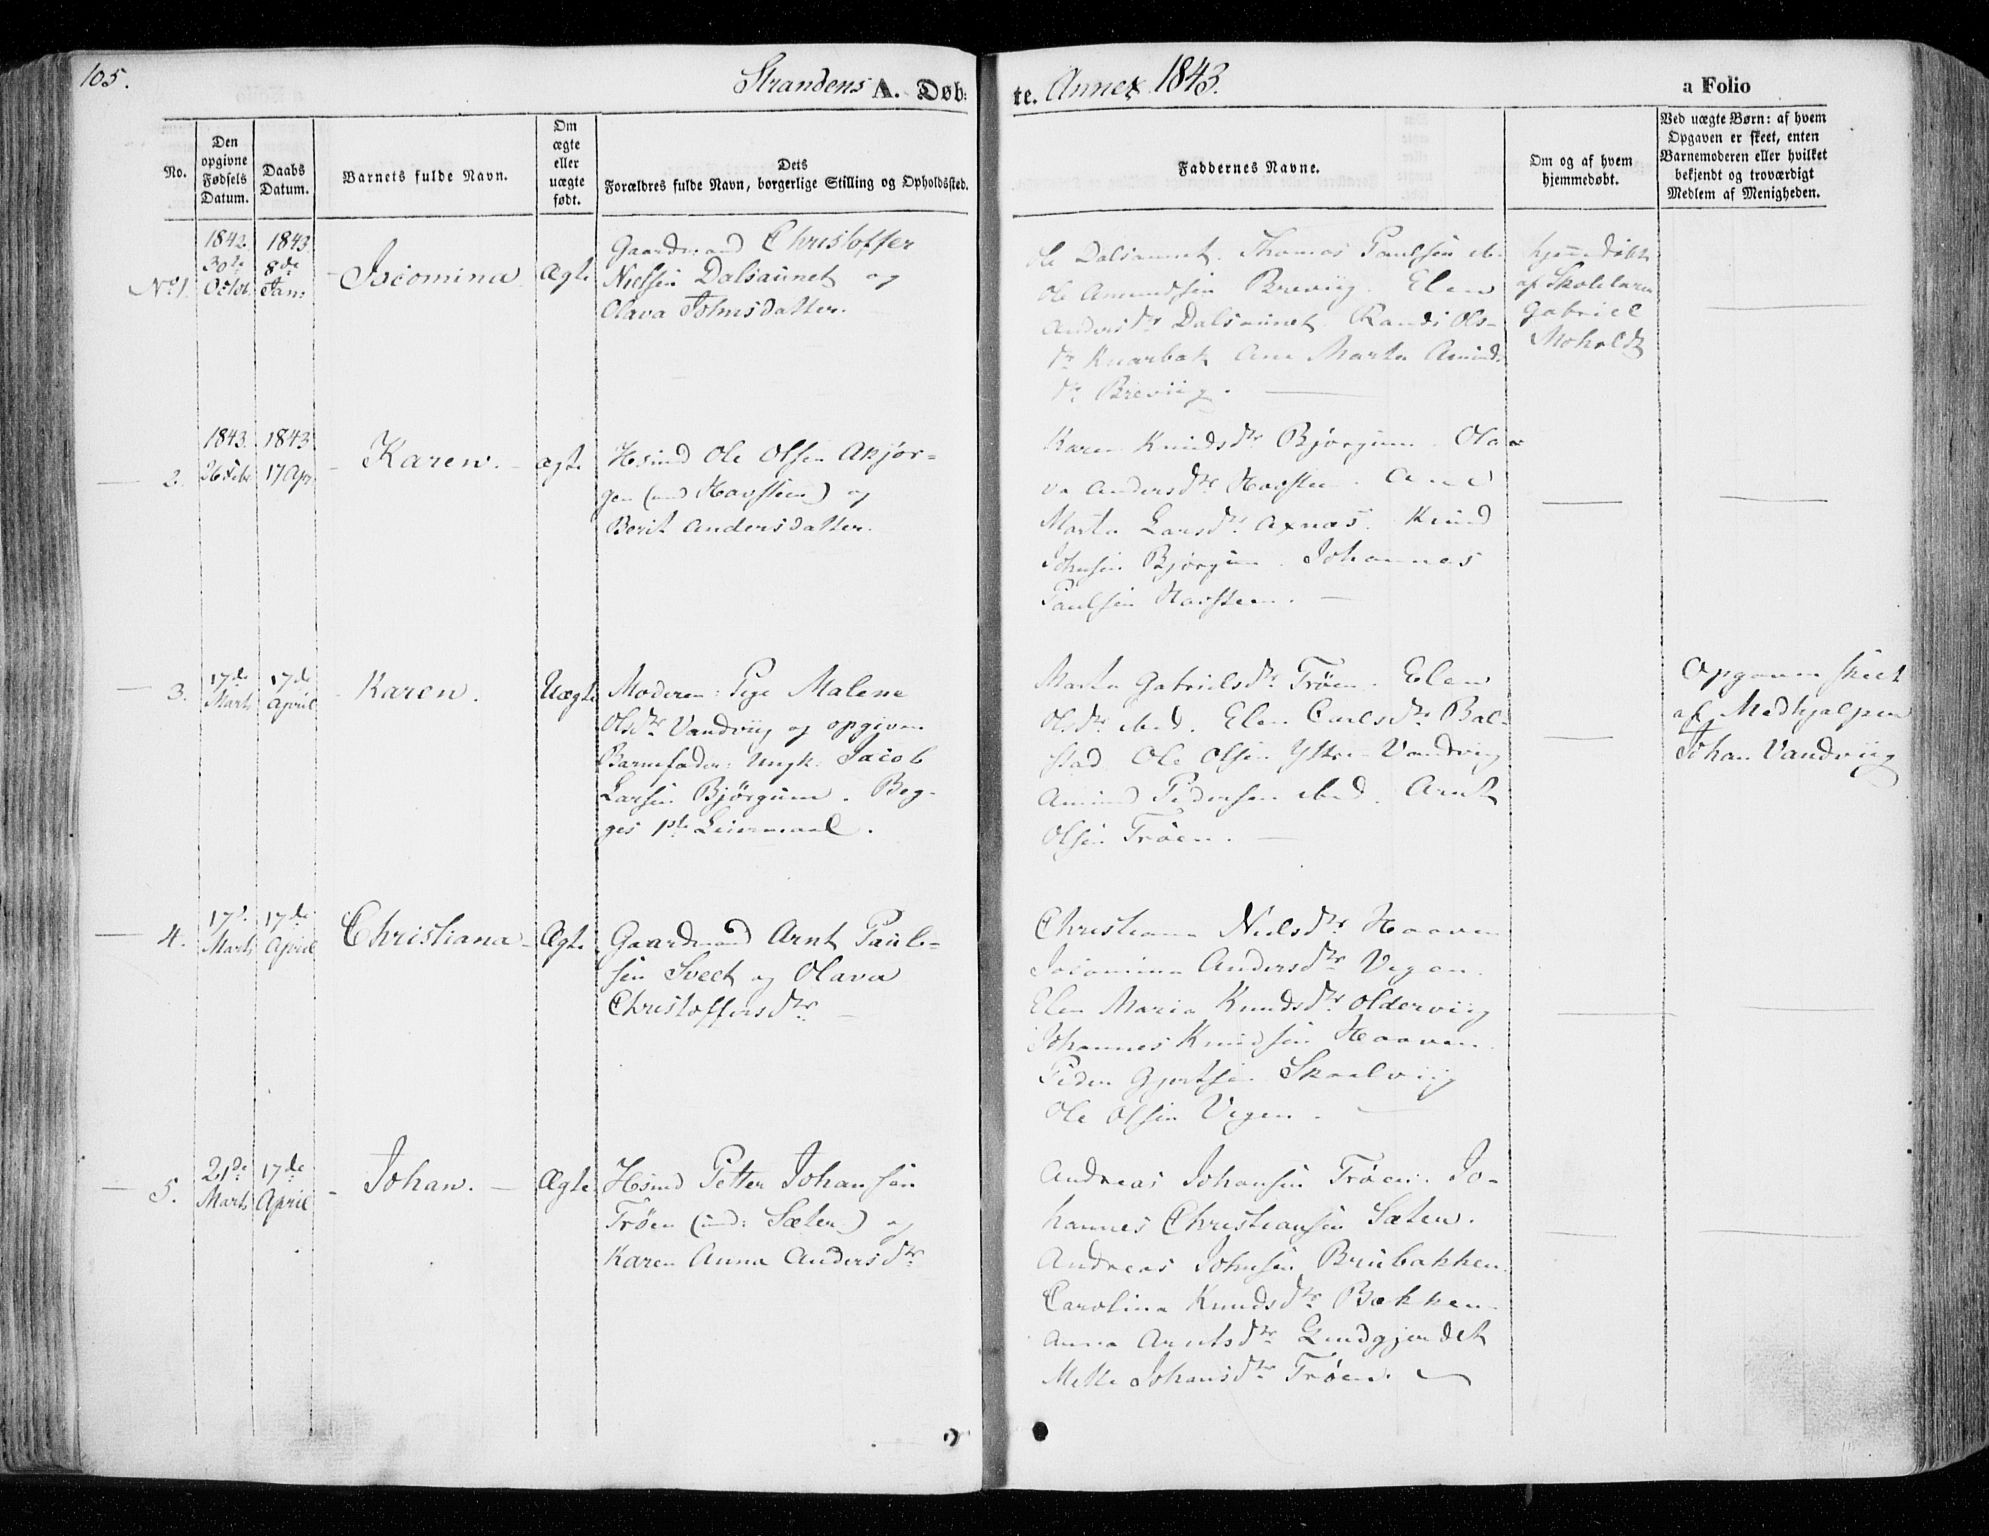 105.
Strandens A. Døb:
te. Annex 1843.
a Folio
No.
Den opgivne Fødsels Datum.
Daabs Datum.
Barnets fulde Navn.
Om ægte eller uægte født.
Dets
Forældres fulde Navn, borgerlige Stilling og Opholdssted.
Faddernes Navne.
Om og af hvem hjemmedøbt.
Ved uægte Børn: af hvem Opgaven er skeet, enten Barnemoderen eller hvilket bekjendt og troværdigt Medlem af Menigheden.
No 1.
1842.
30te
Octob.
1843
8de
Jan:
Jacomina
Ægte
Gaardmand Christoffer
Nielsen Dalsaunet og
Olava Johnsdatter.
Ole Dalsaunet. Thomas Paulsen ib.
Ole Amundsen Breviig. Elen
Andersdtr Dalsaunet. Randi Ols-
dtr Knarbak Ane Marta Amunds
dtr Breviig.
hjemdøbt
af Skolelærer
Gabriel
Moholdt
2.
1843.
26 Febr
1843
17 Apr
Karen.
ægte
Hsmd Ole Olsen Akjør-
gen (und Havsteen) og
Berit Andersdatter.
Karen Knudsdtr Bjørgum. Ola-
va Andersdtr Havsteen. Ane
Marta Larsdtr Axnæs. Knud
Johnsen Bjørgum. Johannes
Paulsen Havsteen.
3.
17de
Marts
17de
April
Karen.
Uægte
Moderen: Pige Malene
Olsdtr Vandviig og opgiven
Barnefader: Ungk: Jacob
Larsen Bjørgum. Beg-
ges 1ste Leiermaal.
Marta Gabrielsdtr Trøen. Elen
Olsdtr ibid. Elen Carlsdtr Bal-
stad. Ole Olsen Yttre-Vandviig
Amund Pedersen ibid. Arnt
Olsen Trøen.
Opgaven skeet
af Medhjælper
Johan Vandviig
4.
17de
Marts
17de
April
Christiana
Ægte
Gaardmand Arnt Paul-
sen Sveet og Olava
Christoffersdtr
Christiana Nielsdtr Haaven
Jacomina Andersdtr Vegen.
Elen Maria Knudsdtr Olderviig
Johannes Knudsen Haaven.
Peder Gjertsen Skaelviig
Ole Olsen Vegen.
5.
21de
Marts
17de
April
Johan.
Ægte
Hsmd Petter Johansen
Trøen (und: Sæter) og
Karen Anna Andersdtr
Andreas Johansen Trøen. Jo-
hannes Christiansen Sæter.
Andreas Johnsen Brubakken.
Carolina Knudsdtr Bækken.
Anna Arntsdtr Lundgjerdet
Mette Johansdtr Trøen.